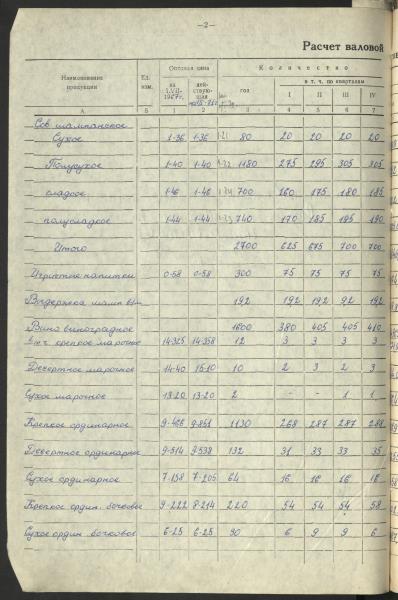 — 2 —
Расчет валовой
Наименование продукции
Ед. изм.
Оптовая цена
Количество
на 1.VII-1967 г.
действующая
год
в т. ч. по кварталам
I II III IV
А Б 1 2 3 4 5 6 7
Сов шампанское
Сухое 1-36 1-36 1-21 80 20 20 20 20
Полусухое 1-40 1-40 1180 275 295 305 305
сладкое 1-46 1-46 700 160 175 180 185
полусладкое 1-44 1-44 740 170 185 195 190
Итого 2700 625 675 700 700
Игристые напитки 0-58 0-58 300 75 75 75 75
Выдержка шамп 192 192 192 92 192
Вино виноградное 1600 380 405 405 410
в т.ч. крепкое марочное 14-325 14-358 12 3 3 3 3
Десертное марочное 14-40 15-10 10 2 3 2 3
Сухое марочное 13-20 13-20 2 - - 1 1
Крепкое ординарное 9-466 9-851 1130 268 287 287 288
Десертное ординарное 9-514 9-538 132 31 33 33 35
Сухое ординарное 7-158 7-205 64 16 16 16 16
Крепкое ордин. бочковое 9-222 8-214 220 54 54 54 58
Сухое ордин. бочковое 6-25 6-25 30 6 9 9 6